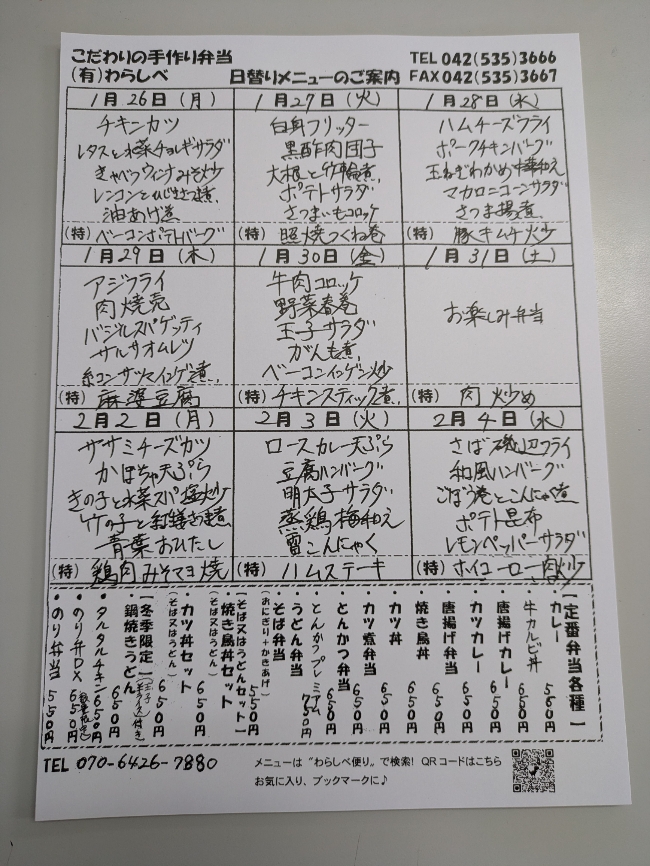 こだわりの手作り弁当
(有)わらしべ
日替りメニューのご案内
TEL 042(535)3666
FAX 042(535)3667
1月26日(月)
チキンカツ
レタスと水菜チョレギサラダ
きゃべつウィンナみそ炒
レンコンとひじきさつま煮
油あげ煮
(特) ベーコンポテトバーグ
1月27日(火)
白身フリッター
黒酢肉団子
大根と竹輪煮
ポテトサラダ
さつまいもコロッケ
(特) 照焼つくね巻
1月28日(水)
ハムチーズフライ
ポークチキンバーグ
玉ねぎわかめ中華和え
マカロニコーンサラダ
さつま揚煮
(特) 豚キムチ炒
1月29日(木)
アジフライ
肉焼売
バジルスパゲッティ
サルサオムレツ
糸コンサツマインゲン煮
(特) 麻婆豆腐
1月30日(金)
牛肉コロッケ
野菜春巻
玉子サラダ
がんも煮
ベーコンインゲン炒
(特) チキンスティック煮
1月31日(土)
お楽しみ弁当
(特) 肉炒め
2月2日(月)
ササミチーズカツ
かぼちゃ天ぷら
きの子と水菜スパ塩炒
竹の子と
青菜おひたし
(特) 鶏肉みそマヨ焼
2月3日(火)
ロースカレー天ぷら
豆腐ハンバーグ
明太子サラダ
蒸鶏梅和え
雷こんにゃく
(特) ハムステーキ
2月4日(水)
さば磯辺フライ
和風ハンバーグ
ごぼう巻とこんにゃく煮
ポテト昆布
レモンペッパーサラダ
(特) ホイコーロー肉炒
【定番弁当各種】
・カレー 560円
・牛カルビ丼 650円
・唐揚げカレー 650円
・カツカレー 650円
・唐揚げ弁当 650円
・焼き鳥丼 650円
・カツ丼 650円
・カツ煮弁当 650円
・とんかつ弁当 650円
とんかつプレミアム 750円
・うどん弁当
・そば弁当 550円
(おにぎり+かきあげ)
【そば又はうどんセット】
・焼き鳥丼セット 650円
(そば又はうどん)
・カツ丼セット 650円
(そば又はうどん)
【冬季限定】
・鍋焼きうどん 650円
・タルタルチキン 650円
・のり弁当DX 650円
・のり弁当 550円
TEL 070-6426-7880
メニューは"わらしべ便り"で検索! QRコードはこちら
お気に入り、ブックマークに♪